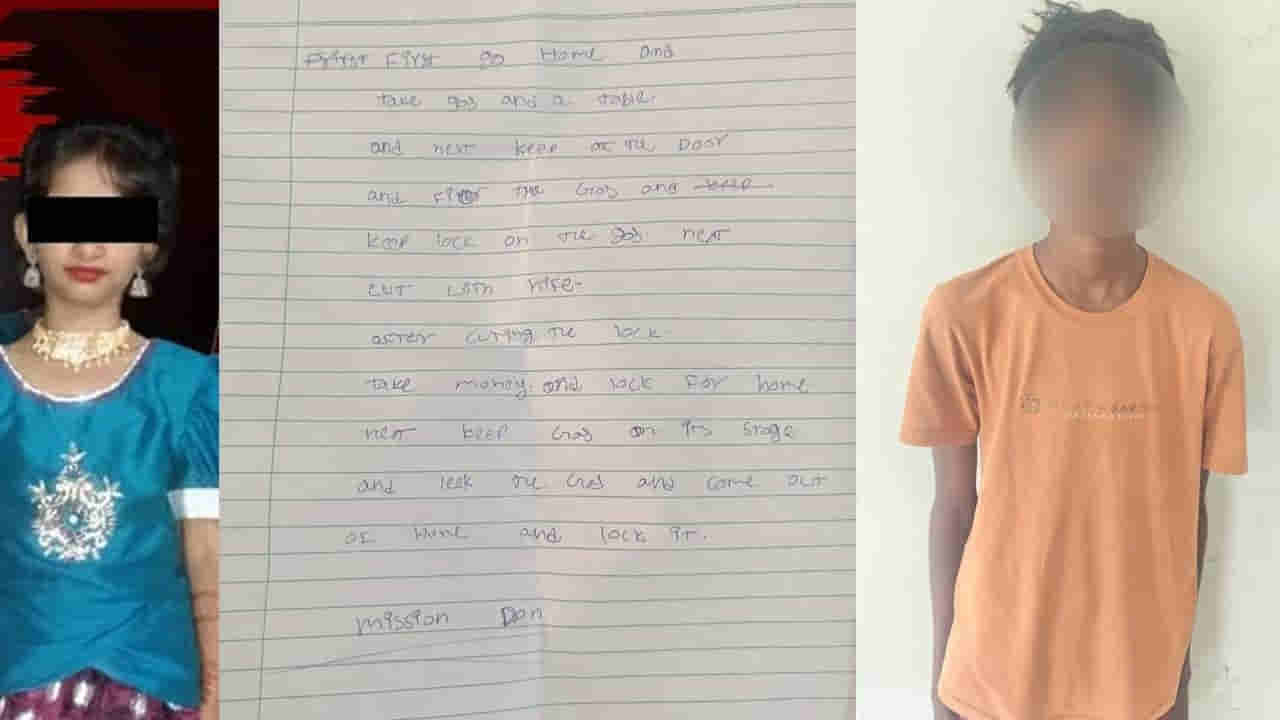 First go Home and
take gas and a table.
and next keep at the Door
and the Gas and
keep lock on the gas next
cut with nife.
after cutting the lock.
take money. and lock For home
next keep Gas on its Stage
and leek the Gas and come out
of Home and lock it.
mission Don